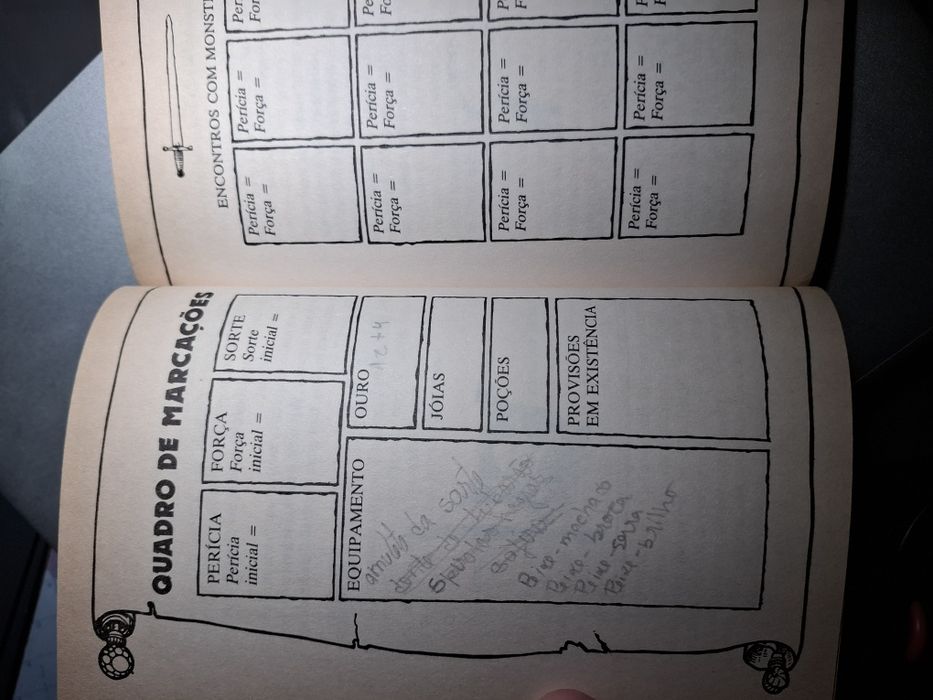 QUADRO DE MARCAÇÕES
PERÍCIA
Perícia
inicial =
FORÇA
Força
inicial =
SORTE
Sorte
inicial =
EQUIPAMENTO
amuleto da sorte
5
Peixe-machado
Peixe-broca
Peixe-serra
Peixe-brilho
OURO
12+4
JÓIAS
POÇÕES
PROVISÕES
EM EXISTÊNCIA
ENCONTROS COM MONST
Perícia =
Força =
Perícia =
Força =
Perícia =
Força =
Perícia =
Força =
Perícia =
Força =
Perícia =
Força =
Perícia =
Força =
Perícia =
Força =